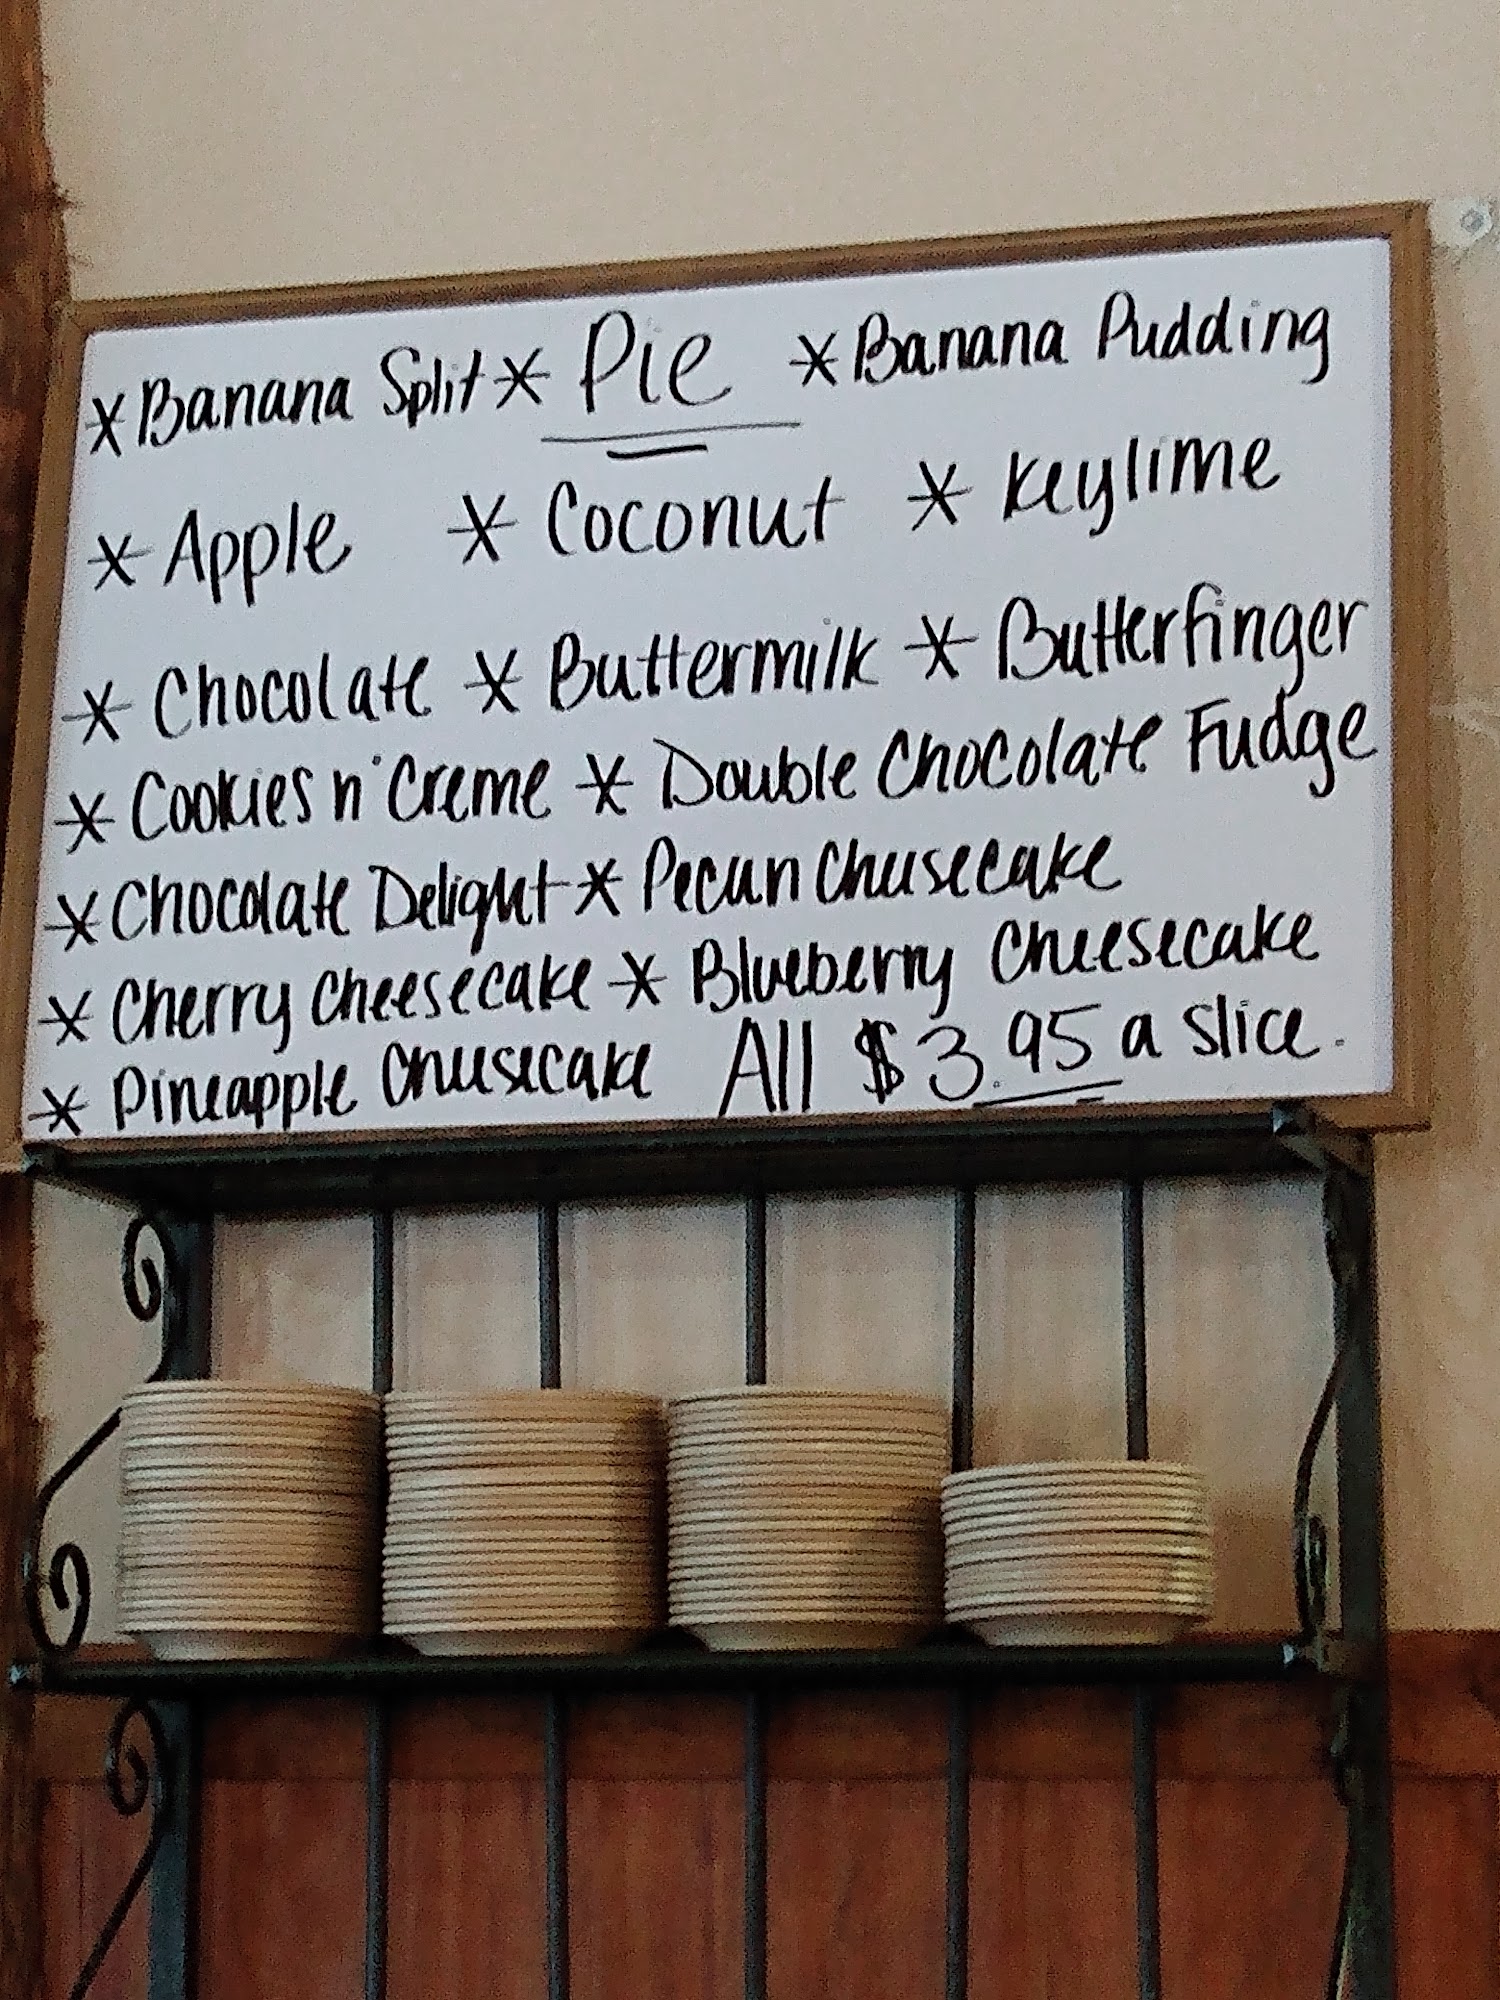 * Banana Split * Pie * Banana Pudding
* Apple * Coconut * Keylime
* Chocolate * Buttermilk * Butterfinger
* Cookies n' Creme * Double Chocolate Fudge
* Chocolate Delight * Pecan Cheesecake
* Cherry Cheesecake * Blueberry Cheesecake
* Pineapple Cheesecake All $3.95 a slice.